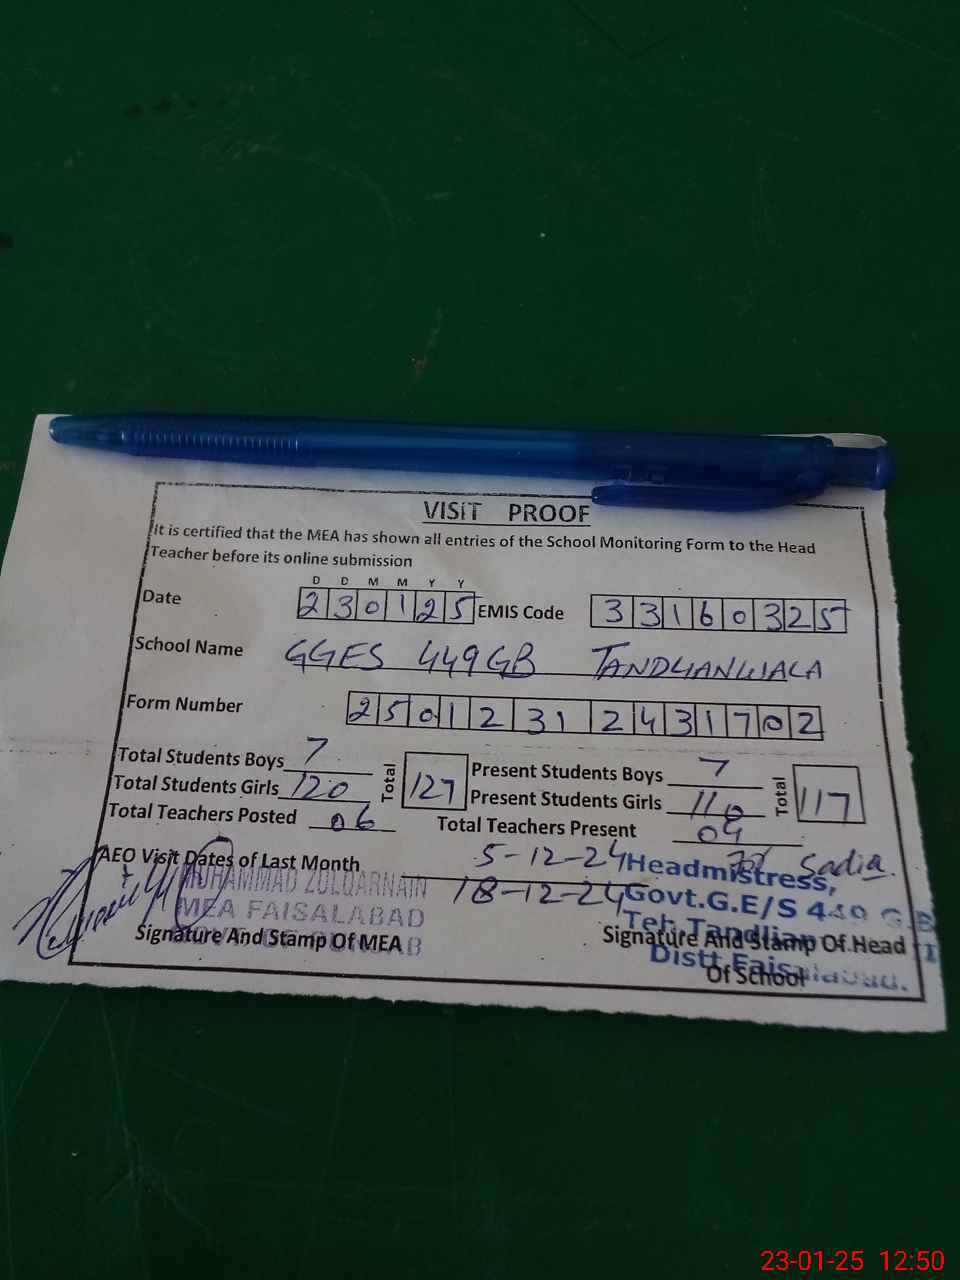 VISIT PROOF
It is certified that the MEA has shown all entries of the School Monitoring Form to the Head
Teacher before its online submission
D D M M Y Y
Date 2 3 0 1 2 5 EMIS Code 3 3 1 6 0 3 2 5
School Name GGES 449GB TANDLIANWALA
Form Number 2 5 0 1 2 3 1 2 4 3 1 7 0 2
Total Students Boys 7 Total 127 Present Students Boys 7 Total 117
Total Students Girls 120 Present Students Girls 110
Total Teachers Posted 06 Total Teachers Present 04
AEO Visit Dates of Last Month 5-12-24 for Sadia.
18-12-24
MUHAMMAD ZULQARNAIN
MEA FAISALABAD
Signature And Stamp Of MEA
Headmistress,
Govt.G.E/S 449 G.B
Teh Tandlian
Distt Faisalabad.
Signature And Stamp Of Head
Of School
23-01-25 12:50